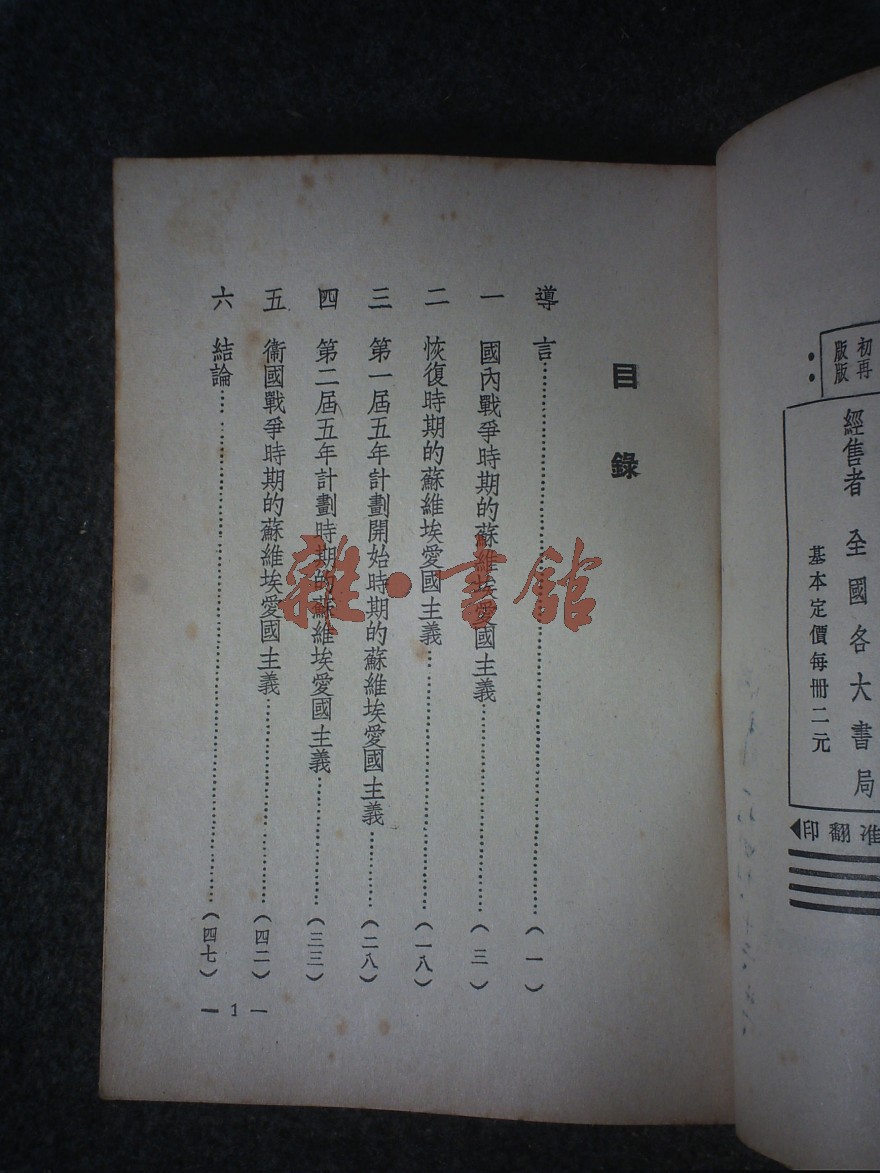 初版：
再版：
經售者 全國各大書局
基本定價每冊二元
准翻印
目錄
導言……(一)
一 國內戰爭時期的蘇維埃愛國主義……(三)
二 恢復時期的蘇維埃愛國主義……(一八)
三 第一屆五年計劃開始時期的蘇維埃愛國主義……(二八)
四 第二屆五年計劃時期的蘇維埃愛國主義……(三三)
五 衞國戰爭時期的蘇維埃愛國主義……(四二)
六 結論……(四七)
— 1 —
雜·書館